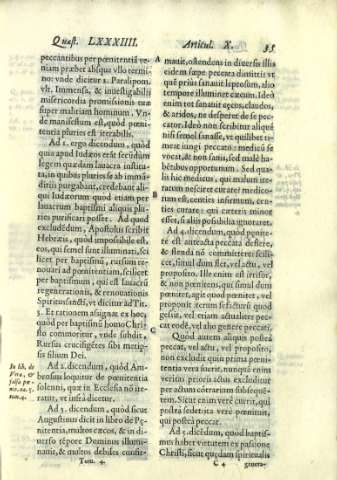 Quæst. LXXXIIII. Articul. X. 35
peccantibus per pœnitentiã ve-
niam præbet absque vllo termi-
no: vnde dicitur 2. Paralipom.
vlt. Immensa, & inuestigabilis
misericordia promissionis tuæ
super malitiam hominum. Vn-
de manifestum est, quòd pœni-
tentia pluries est iterabilis.
Ad 1. ergo dicendum, quòd
quia apud Iudæos erãt secũdum
legem quædam lauacra institu-
ta, in quibus pluries se ab immũ-
ditiis purgabant, credebant ali-
qui Iudæorum quòd etiam per
lauacrum baptismi aliquis plu-
ries purificari posset. Ad quod
excludẽdum, Apostolus scribit
Hebræis, quòd impossibile est,
eos, qui semel sunt illuminati, sci-
licet per baptismũ, rursum re-
nouari ad pœnitentiam, scilicet
per baptismum, qui est lauacrũ
regenerationis, & renouationis
Spiritus sancti, vt dicitur ad Tit.
3. Et rationem assignat ex hoc,
quòd per baptismũ homo Christo
commoritur, vnde subdit,
Rursus crucifigẽtes sibi metip-
sis filium Dei.
Ad 2. dicendum, quòd Am-
brosius loquitur de pœnitentia
solenni, quæ in Ecclesia nõ ite-
ratur, vt infrà dicetur.
Ad 3. dicendum, quòd sicut
Augustinus dicit in libro de Pœ-
nitentia, multos cæcos, & in di-
uerso tẽpore Dominus illumi-
nauit, & multos debiles consir-
Tom. 4.
In lib. de
Vera, &
falsa pœ-
tom. 4.
A
B
C
mauit, ostendens in diuersis illis
eidem sæpe peccata dimitti: vt
quẽ prius sanauit leprosum, alio
tempore illuminet cæcum. Ideò
enim tot sanauit cæcos, claudos,
& aridos, ne desperet sæpe pec-
cator. Ideò non scribitur aliquẽ
nisi semel sanasse, vt quilibet ti-
meat iungi peccato: medicũ se
vocat, & non sanis, sed malè ha-
bẽtibus opportunum. Sed qua-
lis hic medicus, qui malum ite-
ratum nesciret curare? medico-
rum est, centies infirmum, cen-
ties curare: qui cæteris minor
esset, si aliis possibilia ignoraret.
Ad 4. dicendum, quòd pœnite-
re est anteacta peccata deflere,
& flenda nõ committere: scili-
cet, simul dum flet, vel actu, vel
proposito. Ille enim est irrisor,
& non pœnitens, qui simul dum
pœnitet, agit quod pœnitet, vel
proponit iterum se facturũ quod
gessit, vel etiam actualiter pec-
cat eodẽ, vel alio genere peccati.
Quòd autem aliquis postea
peccat, vel actu, vel proposito,
non excludit quin prima pœni-
tentia vera fuerit, nunquã enim
veritas prioris actus excluditur
per actum cõtrarium subsequẽ-
tem. Sicut enim verè currit, qui
postea sedet: ita verè pœnituit,
qui postea peccat.
Ad 5. dicendum, quòd baptis-
mus habet virtutem ex passione
Christi, sicut quædam spiritualis
C 4 genera-